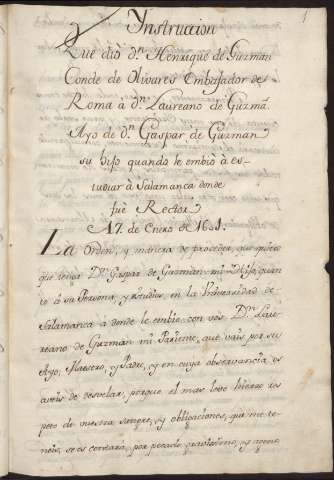 1
Ynstruccion
Que dió Dn. Henrique de Guzman
Conde de Olivares Embajador de
Roma à Dn. Laureano de Guzmã.
Ayo de Dn. Gaspar de Guzman
su hijo quando le embió à es-
tudiar à Salamanca donde
fuè Rector
A 7. de Enero de 1601.
La orden, y manera de proceder que quiero
que tenga Dn. Gaspar de Guzman mi Hijo quan
to à su Persona, y estudios, en la Universidad de
Salamanca à donde le embio con vos Dn. Lau-
reano de Guzman mi Pariente, que vais por su
Ayo, Maestro, y Padre, y en cuya observancia os
aveis de desvelar, porque el mas leve hierro res
peto de nuestra sangre, y obligaciones, que me te-
neis, se os contará por pecado gravissimo, y ageno